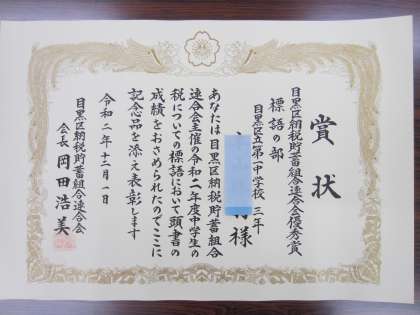 賞状
目黒区納税貯蓄組合連合会優秀賞
標語の部
目黒区立第一中学校 三年
様
あなたは目黒区納税貯蓄組合
連合会主催の令和二年度中学生の
税についての標語において頭書の
成績をおさめられたのでここに
記念品を添え表彰します
令和二年十二月一日
目黒区納税貯蓄組合連合会
会長 岡田浩美